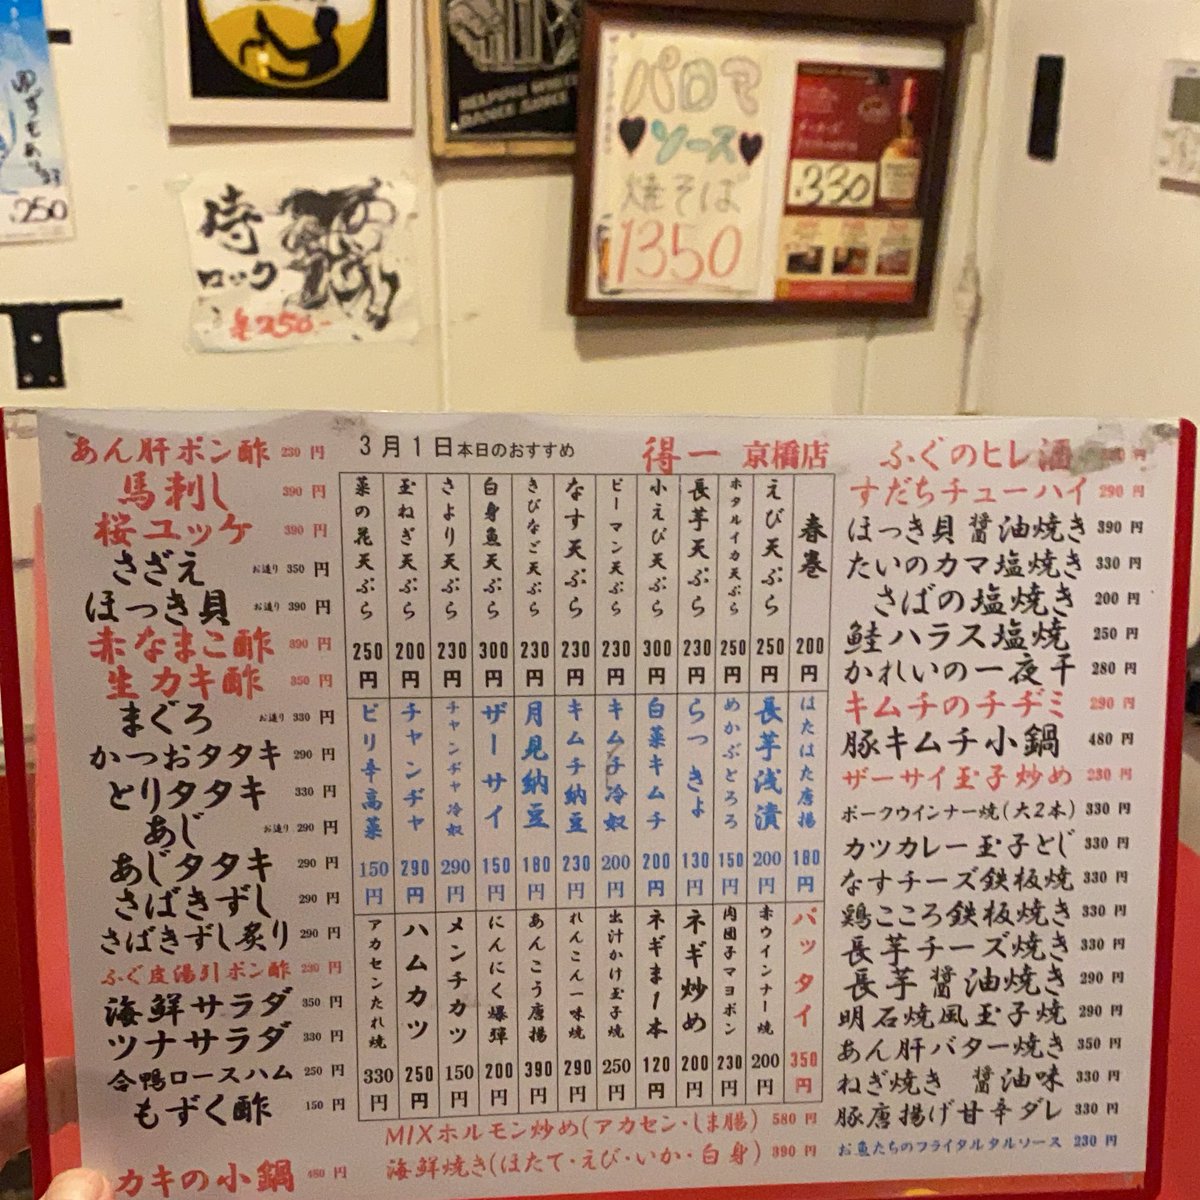 .250
侍
ロック
¥250-
パロマ
ソース
焼そば
1350
.330
3月1日本日のおすすめ
得一 京橋店
あん肝ポン酢 230円
馬刺し 390円
桜ユッケ 390円
さざえ お造り 350円
ほっき貝 お造り 390円
赤なまこ酢 390円
生カキ酢 350円
まぐろ お造り 330円
かつおタタキ 290円
とりタタキ 330円
あじ お造り 290円
あじタタキ 290円
さばきずし 290円
さばきずし炙り 290円
ふぐ皮湯引ポン酢 230円
海鮮サラダ 350円
ツナサラダ 330円
合鴨ロースハム 250円
もずく酢 150円
カキの小鍋 480円
春巻 200円
えび天ぷら 250円
ホタルイカ天ぷら 250円
長芋天ぷら 230円
小えび天ぷら 300円
ピーマン天ぷら 230円
なす天ぷら 230円
きびなご天ぷら 230円
白身魚天ぷら 300円
さより天ぷら 230円
玉ねぎ天ぷら 200円
菜の花天ぷら 250円
はたはた唐揚 180円
長芋浅漬 200円
めかぶとろろ 150円
らっきょ 130円
白菜キムチ 200円
キムチ冷奴 200円
キムチ納豆 230円
月見納豆 180円
ザーサイ 150円
チャンヂャ冷奴 290円
チャンヂャ 290円
ピリ辛高菜 150円
パッタイ 350円
赤ウインナー焼 200円
肉団子マヨポン 230円
ネギ炒め 200円
ネギま1本 120円
出汁かけ玉子焼 250円
れんこん一味焼 290円
あんこう唐揚 390円
にんにく爆弾 200円
メンチカツ 150円
ハムカツ 250円
アカセンたれ焼 330円
MIXホルモン炒め(アカセン・しま腸) 580円
海鮮焼き(ほたて・えび・いか・白身) 390円
ふぐのヒレ酒
すだちチューハイ 290円
ほっき貝醤油焼き 390円
たいのカマ塩焼き 330円
さばの塩焼き 200円
鮭ハラス塩焼 250円
かれいの一夜干 280円
キムチのチヂミ 290円
豚キムチ小鍋 480円
ザーサイ玉子炒め 230円
ポークウインナー焼(大2本) 330円
カツカレー玉子とじ 330円
なすチーズ鉄板焼 330円
鶏こころ鉄板焼き 330円
長芋チーズ焼き 330円
長芋醤油焼き 290円
明石焼風玉子焼 290円
あん肝バター焼き 350円
ねぎ焼き 醤油味 330円
豚唐揚げ甘辛ダレ 330円
お魚たちのフライタルタルソース 230円